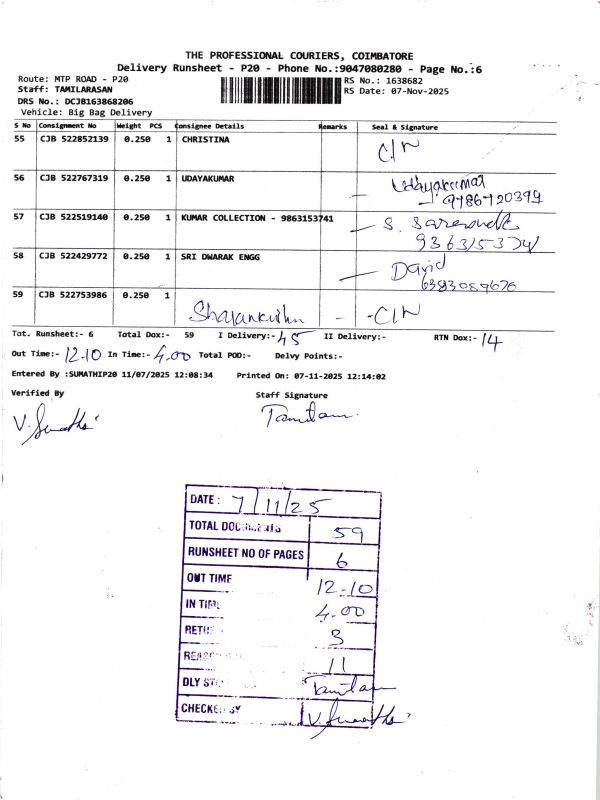 THE PROFESSIONAL COURIERS, COIMBATORE
Delivery Runsheet - P20 - Phone No.:9047080280 - Page No.:6
Route: MTP ROAD - P20 RS No.: 1638682
Staff: TAMILARASAN RS Date: 07-Nov-2025
DRS No.: DCJB163868206
Vehicle: Big Bag Delivery
S No Consignment No Weight PCS Consignee Details Remarks Seal & Signature
55 CJB 522852139 0.250 1 CHRISTINA C/N
56 CJB 522767319 0.250 1 UDAYAKUMAR Udayakumar
9786720399
57 CJB 522519140 0.250 1 KUMAR COLLECTION - 9863153741 S.
9363153741
58 CJB 522429772 0.250 1 SRI DWARAK ENGG David
6383089676
59 CJB 522753986 0.250 1 - -C/N
Tot. Runsheet:- 6 Total Dox:- 59 I Delivery:- 45 II Delivery:- RTN Dox:- 14
Out Time:- 12.10 In Time:- 4.00 Total POD:- Delvy Points:-
Entered By :SUMATHIP20 11/07/2025 12:08:34 Printed On: 07-11-2025 12:14:02
Verified By Staff Signature
V. Sumathi Tamilam
DATE: 7/11/25
TOTAL DOCUMENTS 59
RUNSHEET NO OF PAGES 6
OUT TIME 12.10
IN TIME 4.00
RETU 3
REASO 11
DLY ST Tamilam
CHECKED BY V. Sumathi